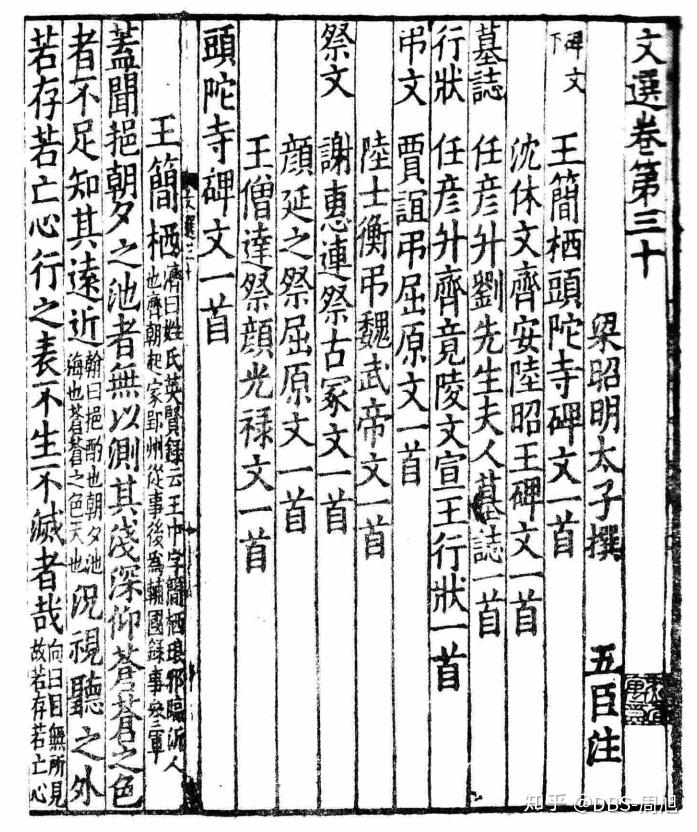 文選卷第三十
梁昭明太子撰 五臣注
碑文下 王簡栖頭陀寺碑文一首
沈休文齊安陸昭王碑文一首
墓誌 任彦升劉先生夫人墓誌一首
行狀 任彦升齊竟陵文宣王行狀一首
弔文 賈誼弔屈原文一首
陸士衡弔魏武帝文一首
祭文 謝惠連祭古冢文一首
顔延之祭屈原文一首
王僧達祭顔光禄文一首
頭陀寺碑文一首
文選三十
王簡栖 濟曰姓氏英賢錄云王巾字簡栖琅邪臨沂人也齊朝起家郢州從事後爲輔國録事参軍
蓋聞挹朝夕之池者無以測其淺深仰蒼蒼之色
者不足知其遠近 翰曰挹酌也朝夕池海也蒼蒼之色天也 況視聽之外
若存若亡心行之表不生不滅者哉 向曰目無所見故若存若亡心
知乎 @DBS-周旭